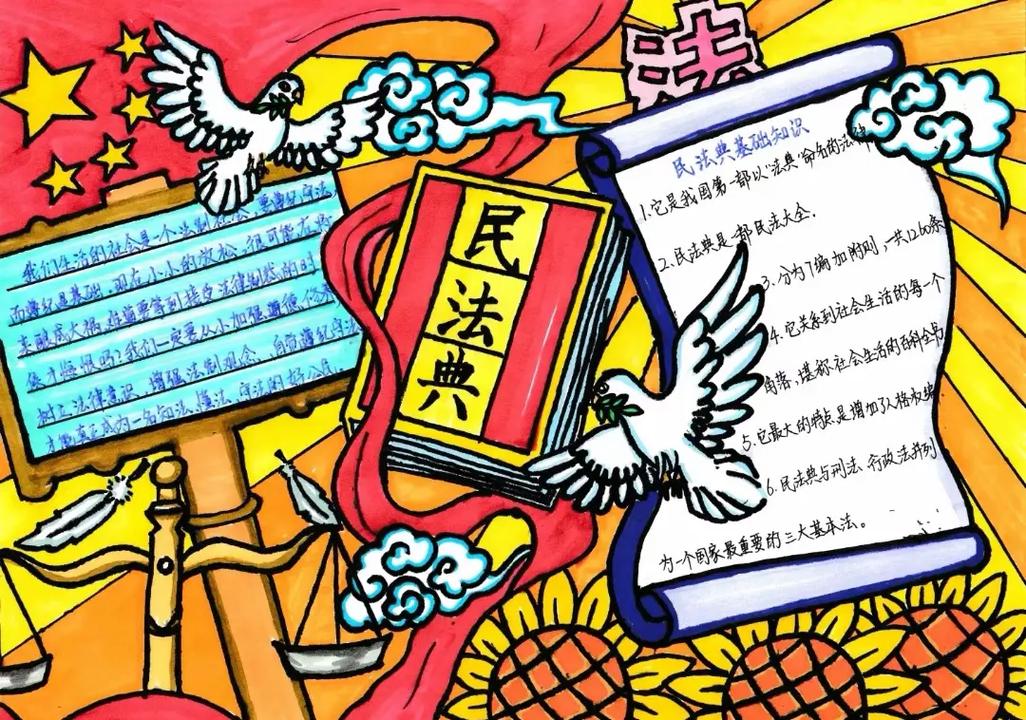 法
民法典
我们生活的社会是一个法制社会,要遵纪守法
而遵纪是基础,现在小小的放松,很可能在将
来酿成大祸,难道要等到接受法律制裁的时
候才悔恨吗?我们一定要从小加强道德修养
树立法律意识,增强法制观念,自觉遵纪守法
才能真正成为一名知法、懂法、守法的好公民。
民法典基础知识
1.它是我国第一部以"法典"命名的法律
2.民法典是一部民法大全.
3.分为7编加附则,一共1260条
4.它关系到社会生活的每一个
角落,堪称社会生活的百科全书
5.它最大的特点是增加了人格权编
6.民法典与刑法、行政法并列
为一个国家最重要的三大基本法。